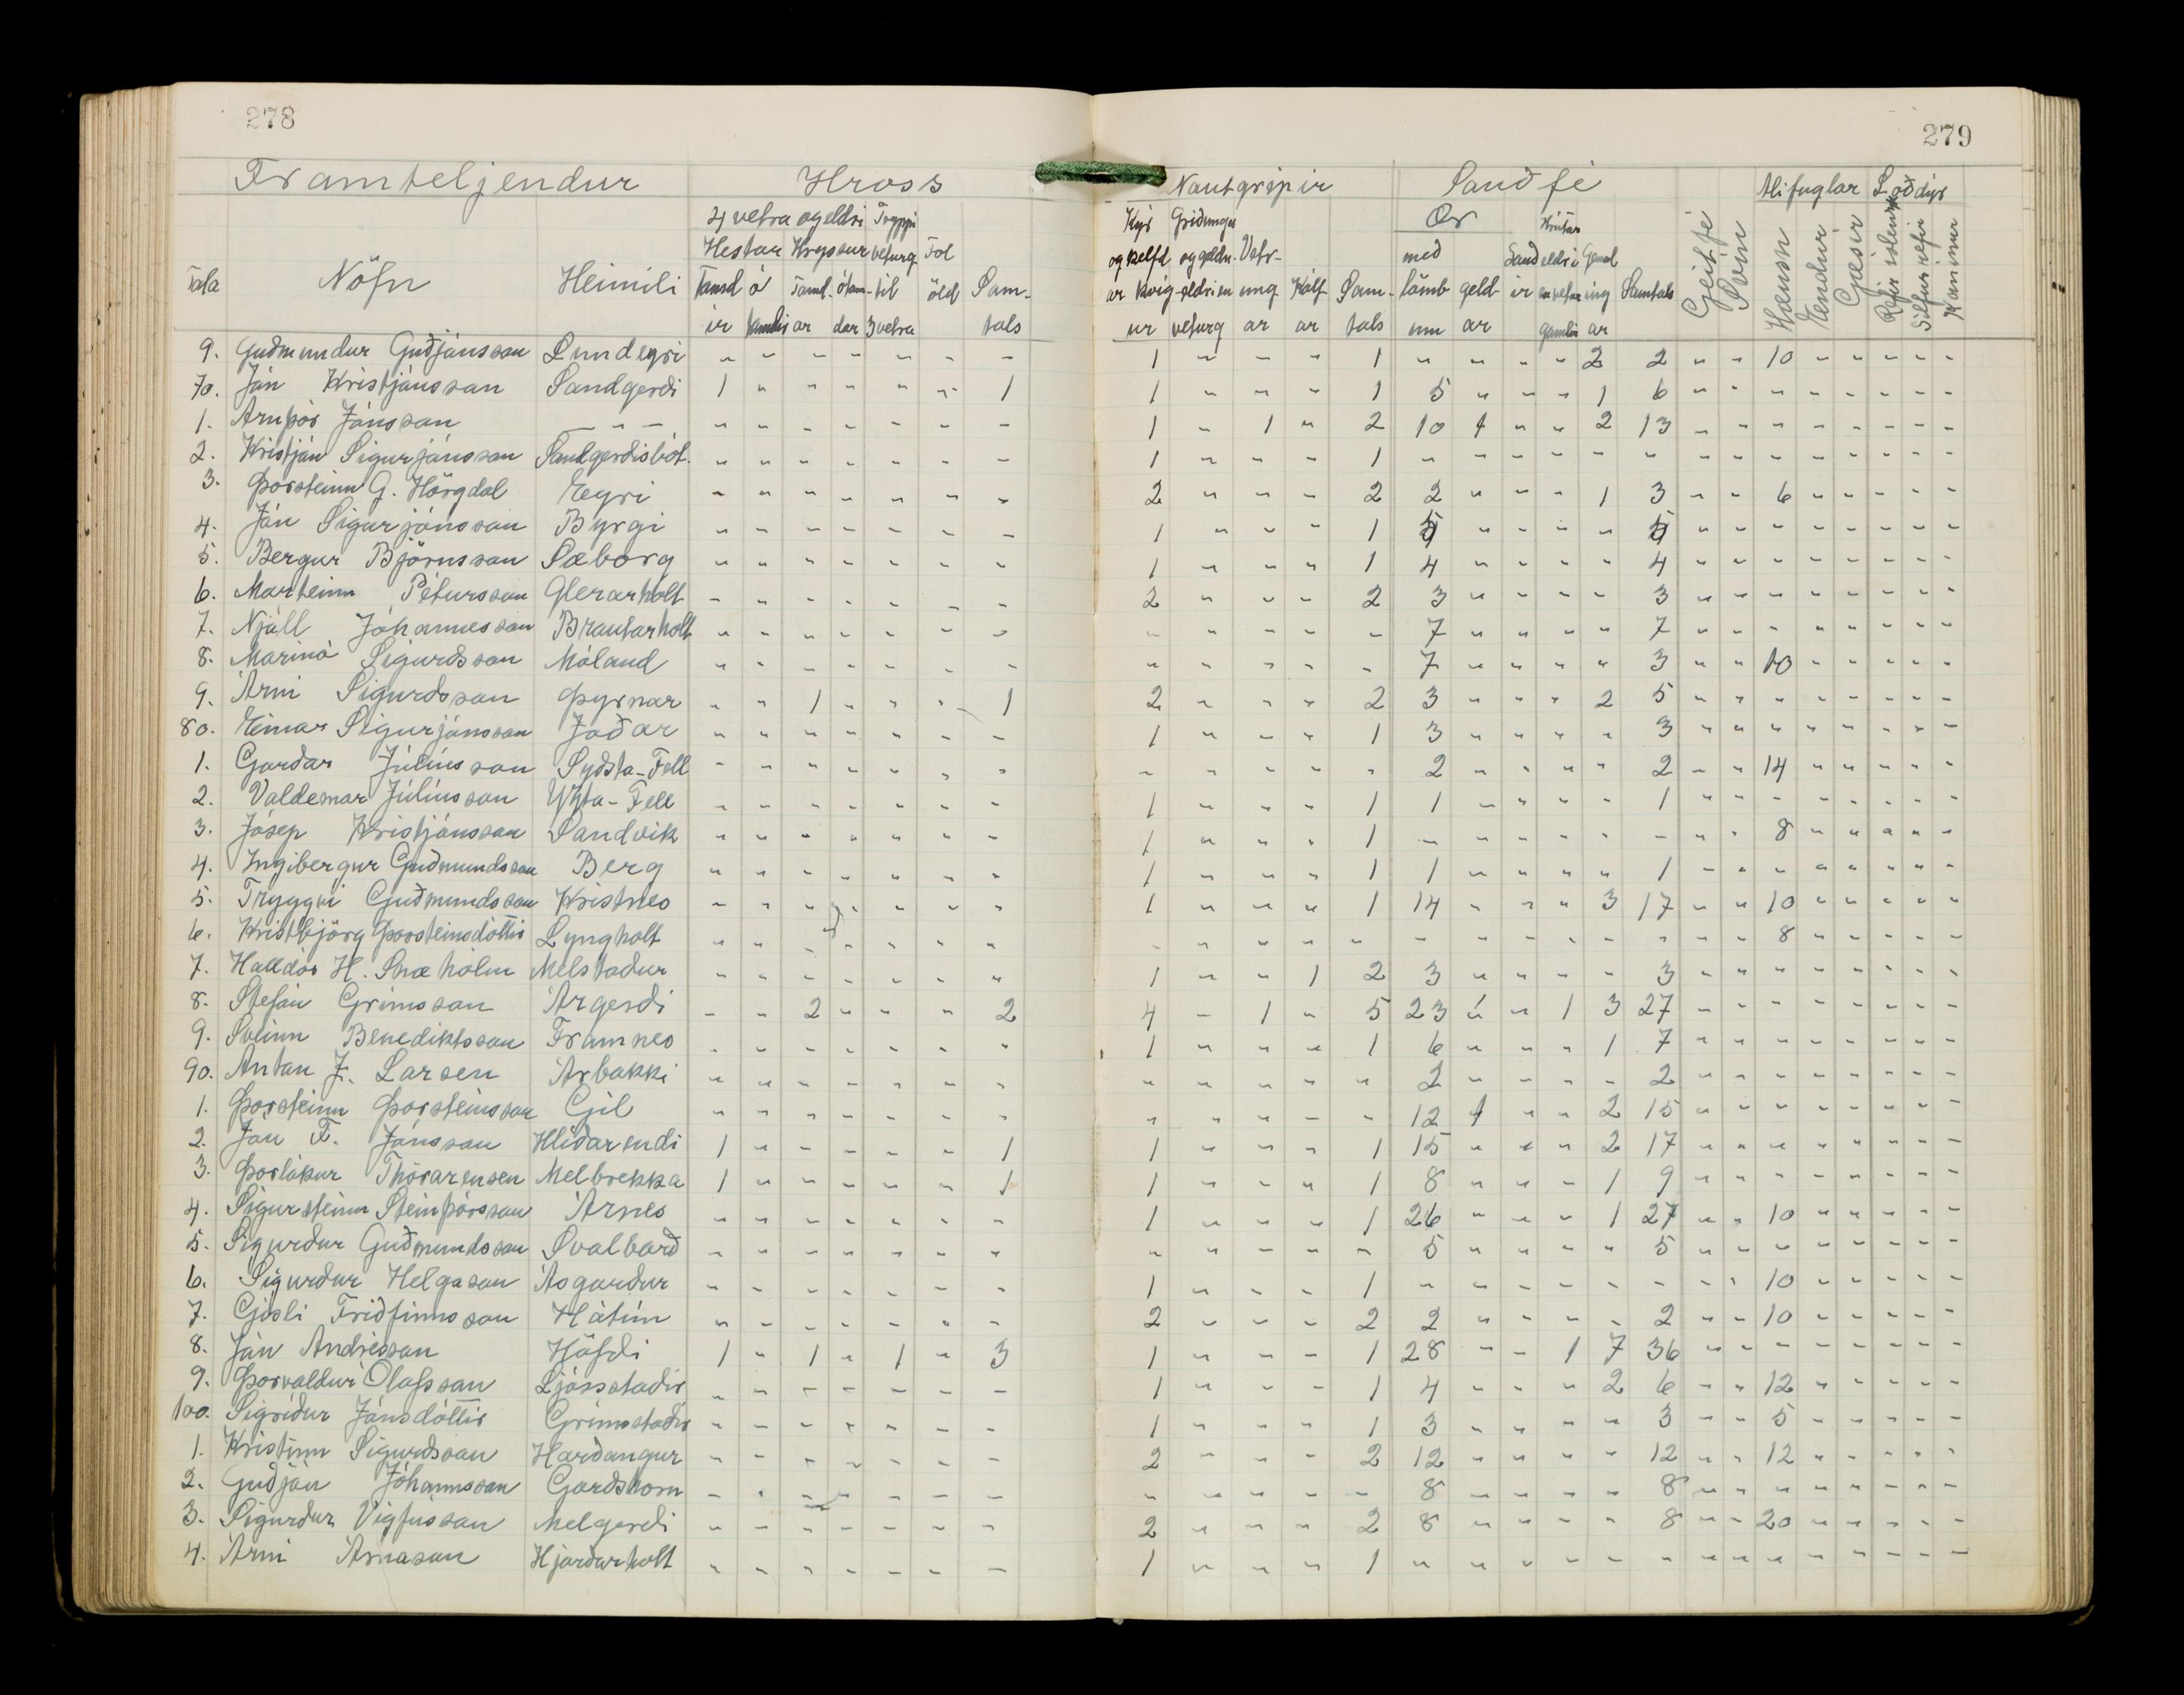 278
279
Framteljendur Hross Nautgripir Sauðfé Alifuglar Loðdýr
Tala Nöfn Heimili
4 vetra og eldri Tryppi
Hestar Hryssur veturg. Fol
Tamd ó Tamd. ótam- til öld Sam-
ir tamdir ar dar 3 vetra tals
Kýr Griðungar
og kelfd og geldn. Vetr-
ar kvíg- eldri en ung Kálf Sam-
ur veturg ar ar tals
Ær
með Sauð eldri Geml
lömb geld ir en vetur ing Samtals
um ar gamlir ar
Hrútar
Geitfé Svín Hænsn Endur Gæsir Refir íslenskir Silfurrefir Kanínur
9. Guðmundur Guðjónsson Lundeyri " " " " " " " 1 " " " 1 " " " " 2 2 " " 10 " " " " "
70. Jón Kristjánsson Sandgerði 1 " " " " " 1 1 " " " 1 5 " " " 1 6 " " " " " " " "
1. Arnþór Jónsson — " — " " " " " " " 1 " 1 " 2 10 1 " " 2 13 " " " " " " " "
2. Kristján Sigurjónsson Sandgerðisbót. " " " " " " " 1 " " " 1 " " " " " " " " " " " " " "
3. Þorsteinn G. Hörgdal Eyri " " " " " " " 2 " " " 2 2 " " " 1 3 " " 6 " " " " "
4. Jón Sigurjónsson Byrgi " " " " " " " 1 " " " 1 5 " " " " 5 " " " " " " " "
5. Bergur Björnsson Sæborg " " " " " " " 1 " " " 1 4 " " " " 4 " " " " " " " "
6. Marteinn Pétursson Glerárholt " " " " " " " 2 " " " 2 3 " " " " 3 " " " " " " " "
7. Njáll Jóhannesson Brautarholt " " " " " " " " " " " " 7 " " " " 7 " " " " " " " "
8. Marinó Sigurðsson Móland " " " " " " " " " " " " 7 " " " " 3 " " 10 " " " " "
9. Árni Sigurðsson Þyrnar " " 1 " " " 1 2 " " " 2 3 " " " 2 5 " " " " " " " "
80. Einar Sigurjónsson Jaðar " " " " " " " 1 " " " 1 3 " " " " 3 " " " " " " " "
1. Garðar Júlíusson Syðsta-Fell " " " " " " " " " " " " 2 " " " " 2 " " 14 " " " " "
2. Valdemar Júlíusson Ysta-Fell " " " " " " " 1 " " " 1 1 " " " " 1 " " " " " " " "
3. Jósep Kristjánsson Sandvik " " " " " " " 1 " " " 1 " " " " " " " " 8 " " " " "
4. Ingibergur Guðmundsson Berg " " " " " " " 1 " " " 1 1 " " " " 1 " " " " " " " "
5. Tryggvi Guðmundsson Kristnes " " " " " " " 1 " " " 1 14 " " " 3 17 " " 10 " " " " "
6. Kristbjörg Þorsteinsdóttir Lyngholt " " " " " " " " " " " " " " " " " " " " 8 " " " " "
7. Halldór H. Snæhólm Melstaður " " " " " " " 1 " " 1 2 3 " " " " 3 " " " " " " " "
8. Stefán Grímsson Árgerði " " 2 " " " 2 4 " 1 " 5 23 " " 1 3 27 " " " " " " " "
9. Sveinn Benediktsson Framnes " " " " " " " 1 " " " 1 6 " " " 1 7 " " " " " " " "
90. Antan J. Larsen Árbakki " " " " " " " " " " " " 2 " " " " 2 " " " " " " " "
1. Þorsteinn Þorsteinsson Gil " " " " " " " " " " " " 12 1 " " 2 15 " " " " " " " "
2. Jón F. Jónsson Hlíðarendi 1 " " " " " 1 1 " " " 1 15 " " " 2 17 " " " " " " " "
3. Þorlákur Thórarensen Melbrekka 1 " " " " " 1 1 " " " 1 8 " " " 1 9 " " " " " " " "
4. Sigursteinn Steinþórsson Árnes " " " " " " " 1 " " " 1 26 " " " 1 27 " " 10 " " " " "
5. Sigurður Guðmundsson Svalbarð " " " " " " " " " " " " 5 " " " " 5 " " " " " " " "
6. Sigurður Helgason Ásgarður " " " " " " " 1 " " " 1 " " " " " " " " 10 " " " " "
7. Gísli Friðfinnsson Hátún " " " " " " " 2 " " " 2 2 " " " " 2 " " 10 " " " " "
8. Jón Andrésson Höfði 1 " 1 " 1 " 3 1 " " " 1 28 " " 1 7 36 " " " " " " " "
9. Þorvaldur Ólafsson Ljósstaðir " " " " " " " 1 " " " 1 4 " " " 2 6 " " 12 " " " " "
100. Sigríður Jónsdóttir Grímsstaðir " " " " " " " 1 " " " 1 3 " " " " 3 " " 5 " " " " "
1. Kristinn Sigurðsson Harðangur " " " " " " " 2 " " " 2 12 " " " " 12 " " 12 " " " " "
2. Guðjón Jóhannsson Garðshorn " " " " " " " " " " " " 8 " " " " 8 " " " " " " " "
3. Sigurður Vigfússon Melgerði " " " " " " " 2 " " " 2 8 " " " " 8 " " 20 " " " " "
4. Árni Árnason Hjarðarholt " " " " " " " 1 " " " 1 " " " " " " " " " " " " " "